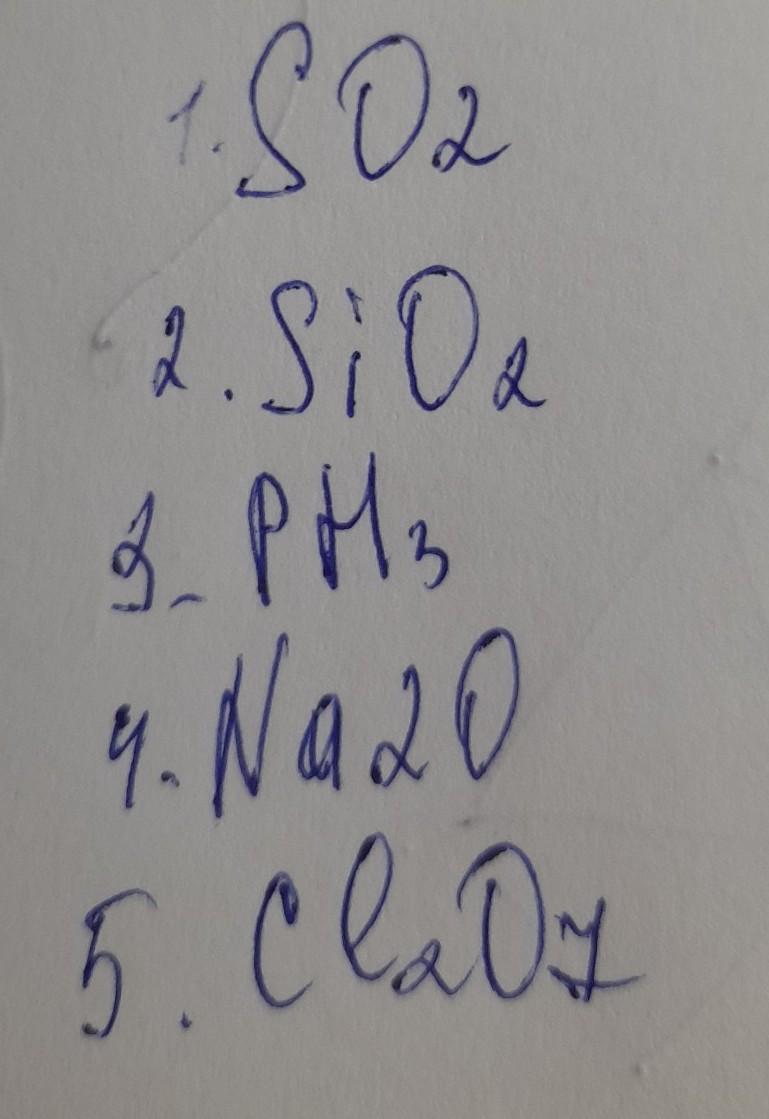 1. SO2
2. SiO2
3. PH3
4. Na2O
5. Cl2O7